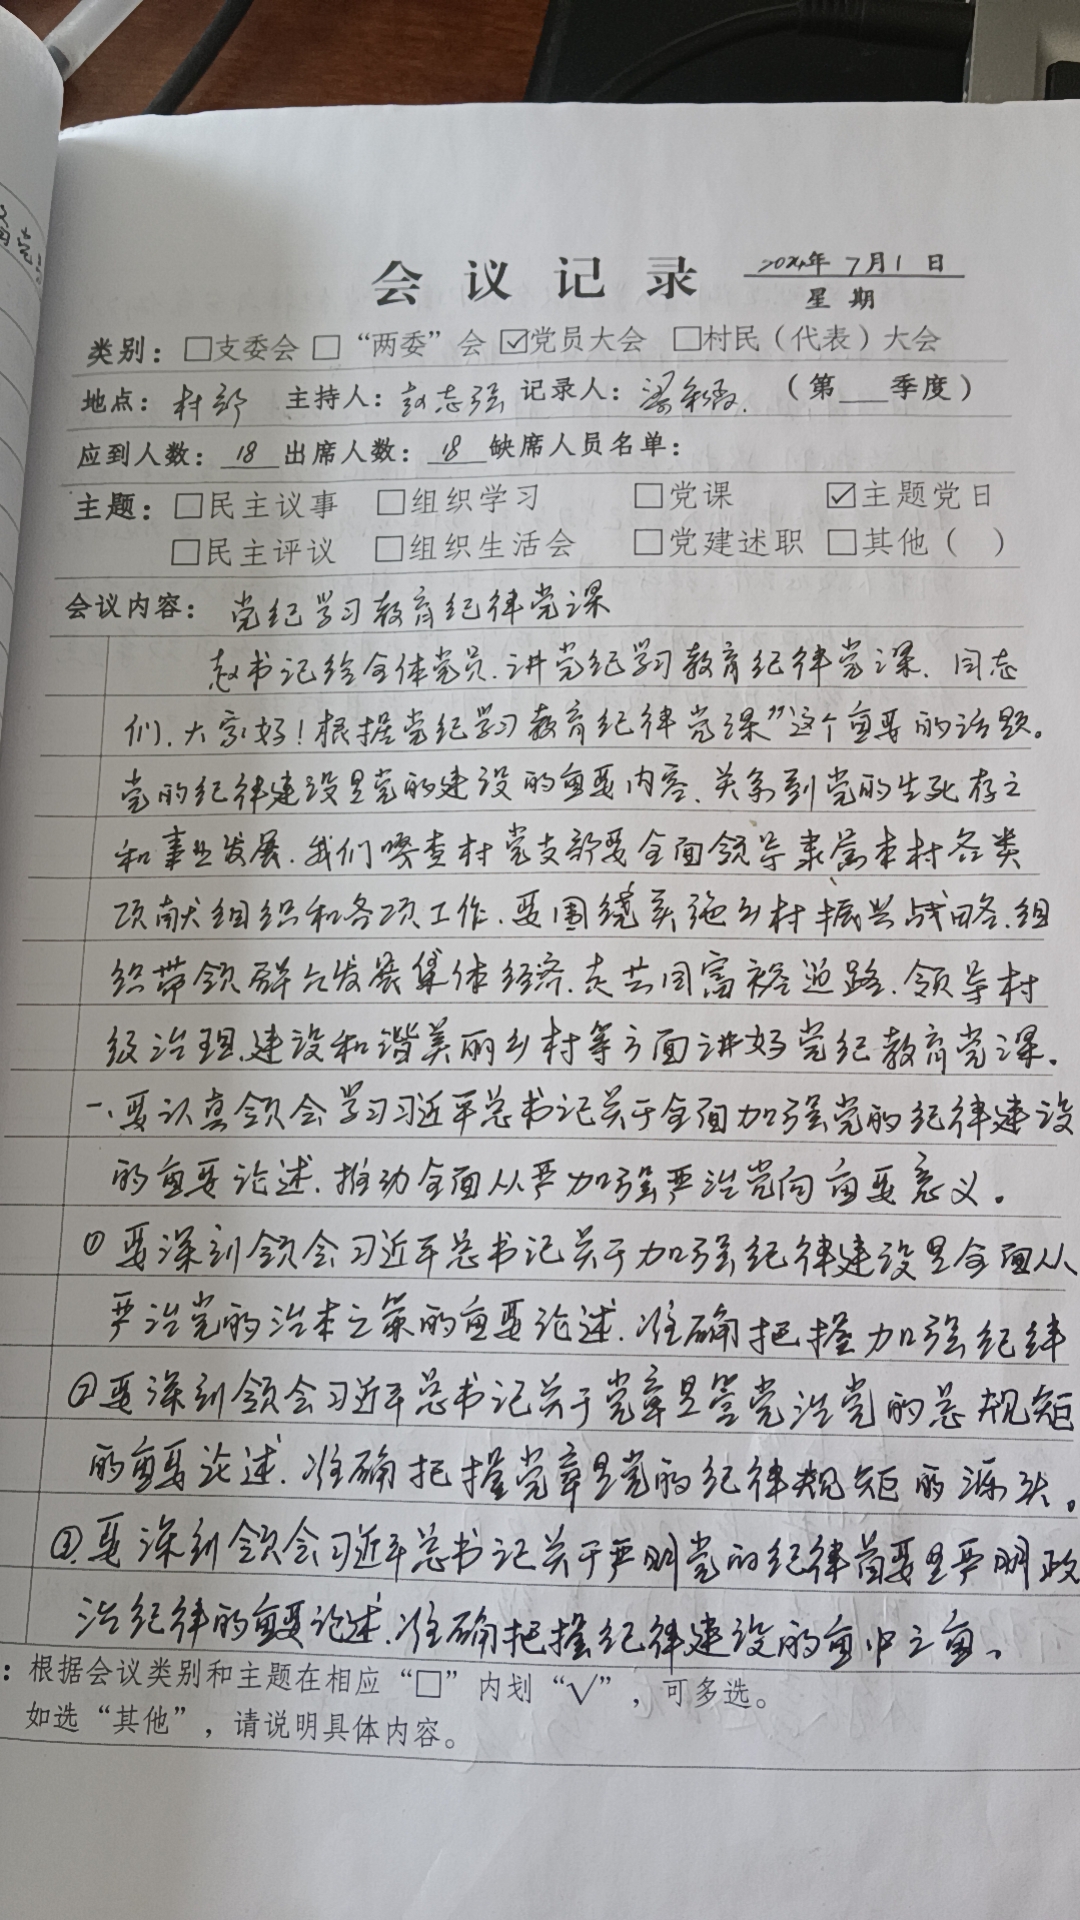 会议记录 2024年7月1日
星期
类别：□支委会 □“两委”会 ☑党员大会 □村民（代表）大会
地点：村部 主持人：赵志强 记录人：梁 （第___季度）
应到人数：18 出席人数：18 缺席人员名单：
主题：□民主议事 □组织学习 □党课 ☑主题党日
□民主评议 □组织生活会 □党建述职 □其他（ ）
会议内容：党纪学习教育纪律党课
赵书记给全体党员.讲党纪学习教育纪律党课.同志
们.大家好！根据党纪学习教育纪律党课”这个重要的话题。
党的纪律建设是党的建设的重要内容、关系到党的生死存亡
和事业发展.我们 查村党支部要全面领导隶属本村各类
项献组织和各项工作.要围绕实施乡村振兴战略.组
织带领群众发展集体经济.走共同富裕道路.领导村
级治理.建设和谐美丽乡村等方面讲好党纪教育党课.
一、要认真领会学习习近平总书记关于全面加强党的纪律建设
的重要论述.推动全面从严加强严治党向重要意义。
①要深刻领会习近平总书记关于加强纪律建设是全面从
严治党的治本之策的重要论述.准确把握加强纪律
②要深刻领会习近平总书记关于党章是管党治党的总规矩
的重要论述.准确把握党章是党的纪律规矩的源头。
③.要深刻领会习近平总书记关于严明党的纪律首要是严明政
治纪律的重要论述.准确把握纪律建设的重中之重、
：根据会议类别和主题在相应“□”内划“√”，可多选。
如选“其他”，请说明具体内容。